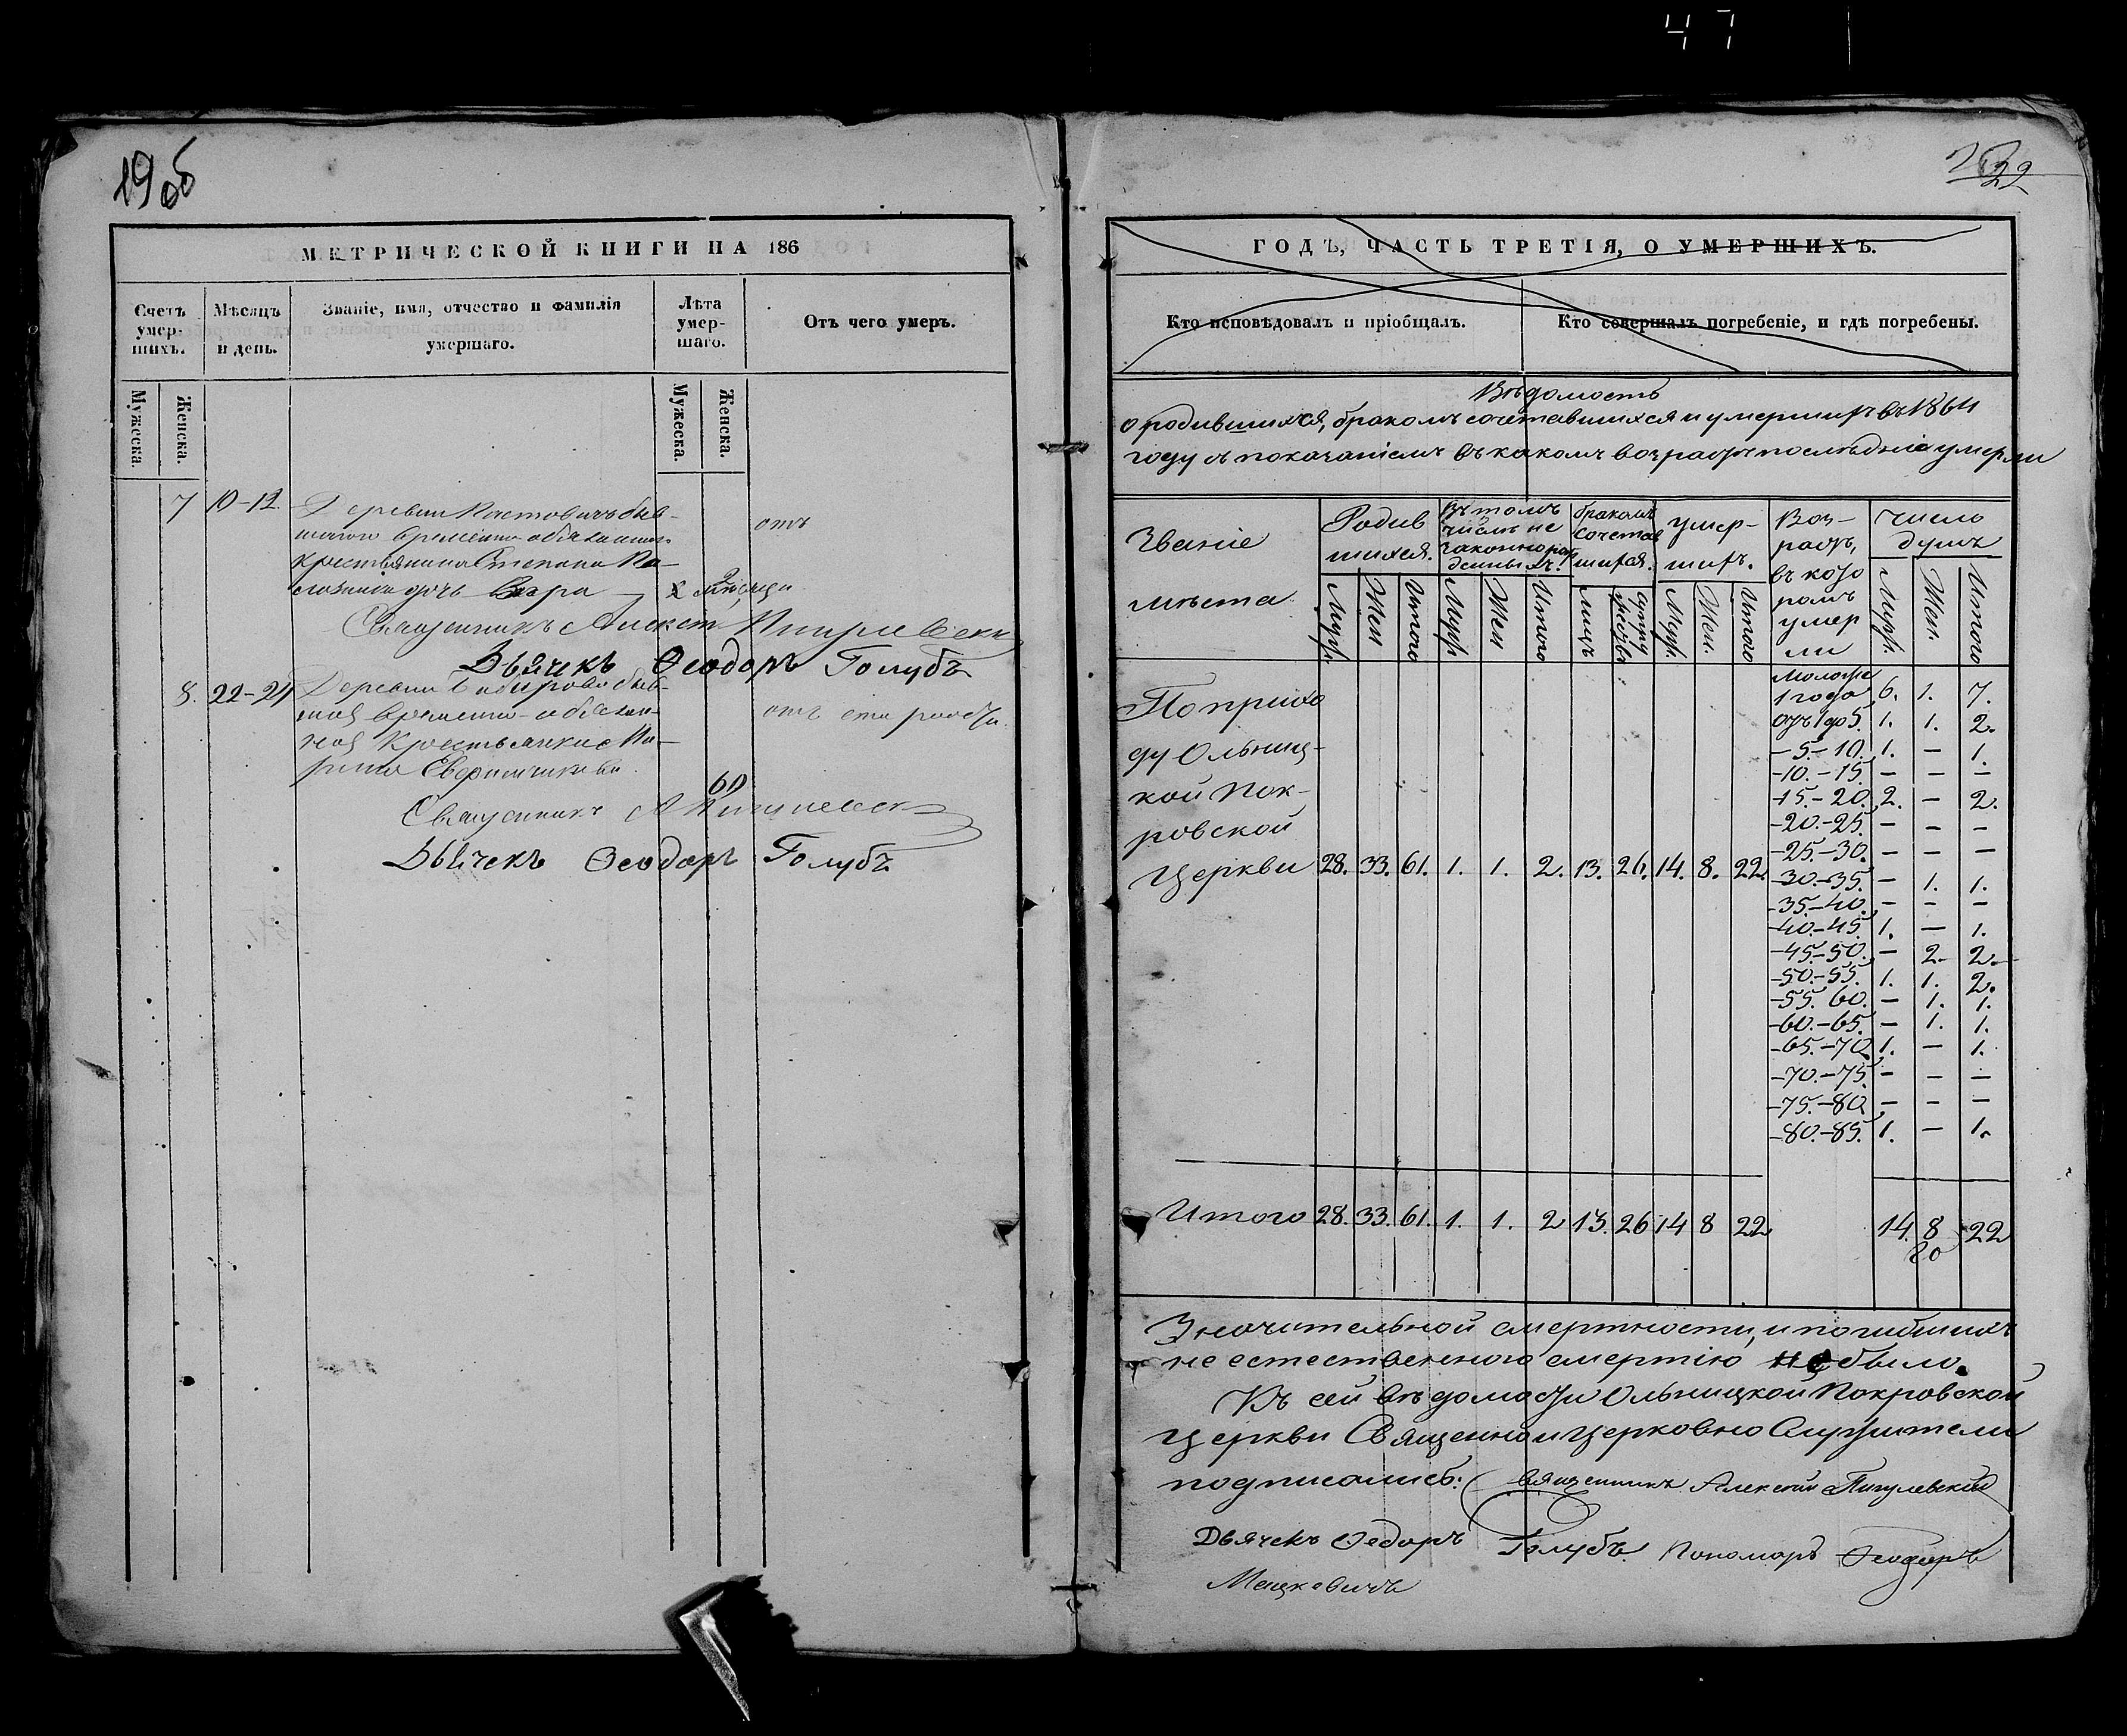 47
19об
22
МЕТРИЧЕСКОЙ КНИГИ НА 186
Счетъ умер-шихъ.
Мѣсяцъ и день.
Званіе, имя, отчество и фамилія умершаго.
Лѣта умер-шаго.
Отъ чего умеръ.
Мужеска.
Женска.
Мужеска.
Женска.
7 10-12. Деревни быв-
шаго временно обязаннаго отъ
крестьянина Степана
дочь Вера
Священникъ Алексѣй Пигулевскій
Дьячекъ Ѳеодоръ Голубъ
8. 22-24 Деревни быв-
шая временно-обязан- отъ старости
ная крестьянка Ма-
рина
60
Священникъ А Пигулевскій
Дьячекъ Ѳеодоръ Голубъ
ГОДЪ, ЧАСТЬ ТРЕТІЯ, О УМЕРШИХЪ.
Кто исповѣдовалъ и пріобщалъ.
Кто совершалъ погребеніе, и гдѣ погребены.
Вѣдомость
о родившихся, бракомъ сочетавшихся и умершихъ въ 1864
году съ показаніемъ въ какомъ возрастѣ послѣдніе умерли
Званіе мѣста
Родив шихся.
Въ томъ числѣ не законнорож денныхъ.
бракомъ сочетав шихся.
умер- шихъ.
Воз- растъ, въ кото ромъ умер ли
Число душъ
Муж. Жен Итого Муж Жен Итого лицъ Муж. Жен. Итого Муж. Жен. Итого
Моложе
1 года 6. 1. 7.
отъ 1 до 5. 1. 1. 2.
-5.-10. 1. - 1.
-10.-15. - - -
-15.-20. 2. - 2.
-20.-25. - - -
-25.-30. - - -
-30.-35. - 1. 1.
-35.-40. - - -
-40.-45. 1. - 1.
-45.-50. - 2. 2.
-50.-55. 1. 1. 2.
-55. 60. - 1. 1.
-60.-65. - 1. 1.
-65.-70. 1. - 1.
-70.-75. - - -
-75.-80. - - -
-80.-85. 1. - 1.
По прихо
ду Ольниц-
кой Пок-
ровской
Церкви 28. 33. 61. 1. 1. 2. 13. 26. 14. 8. 22.
Итого 28. 33. 61. 1. 1. 2 13. 26 14 8 22. 14. 8 22
Значительной смертности, и погибшихъ
не естественного смертію не было.
Къ сей вѣдомости Ольницкой Покровской
Церкви Священно и Церковно Служители
подписались: Священникъ Алексѣй Пигулевскій
Дьячекъ Ѳеодоръ Голубъ Пономарь Ѳеодоръ
Мацкевичъ